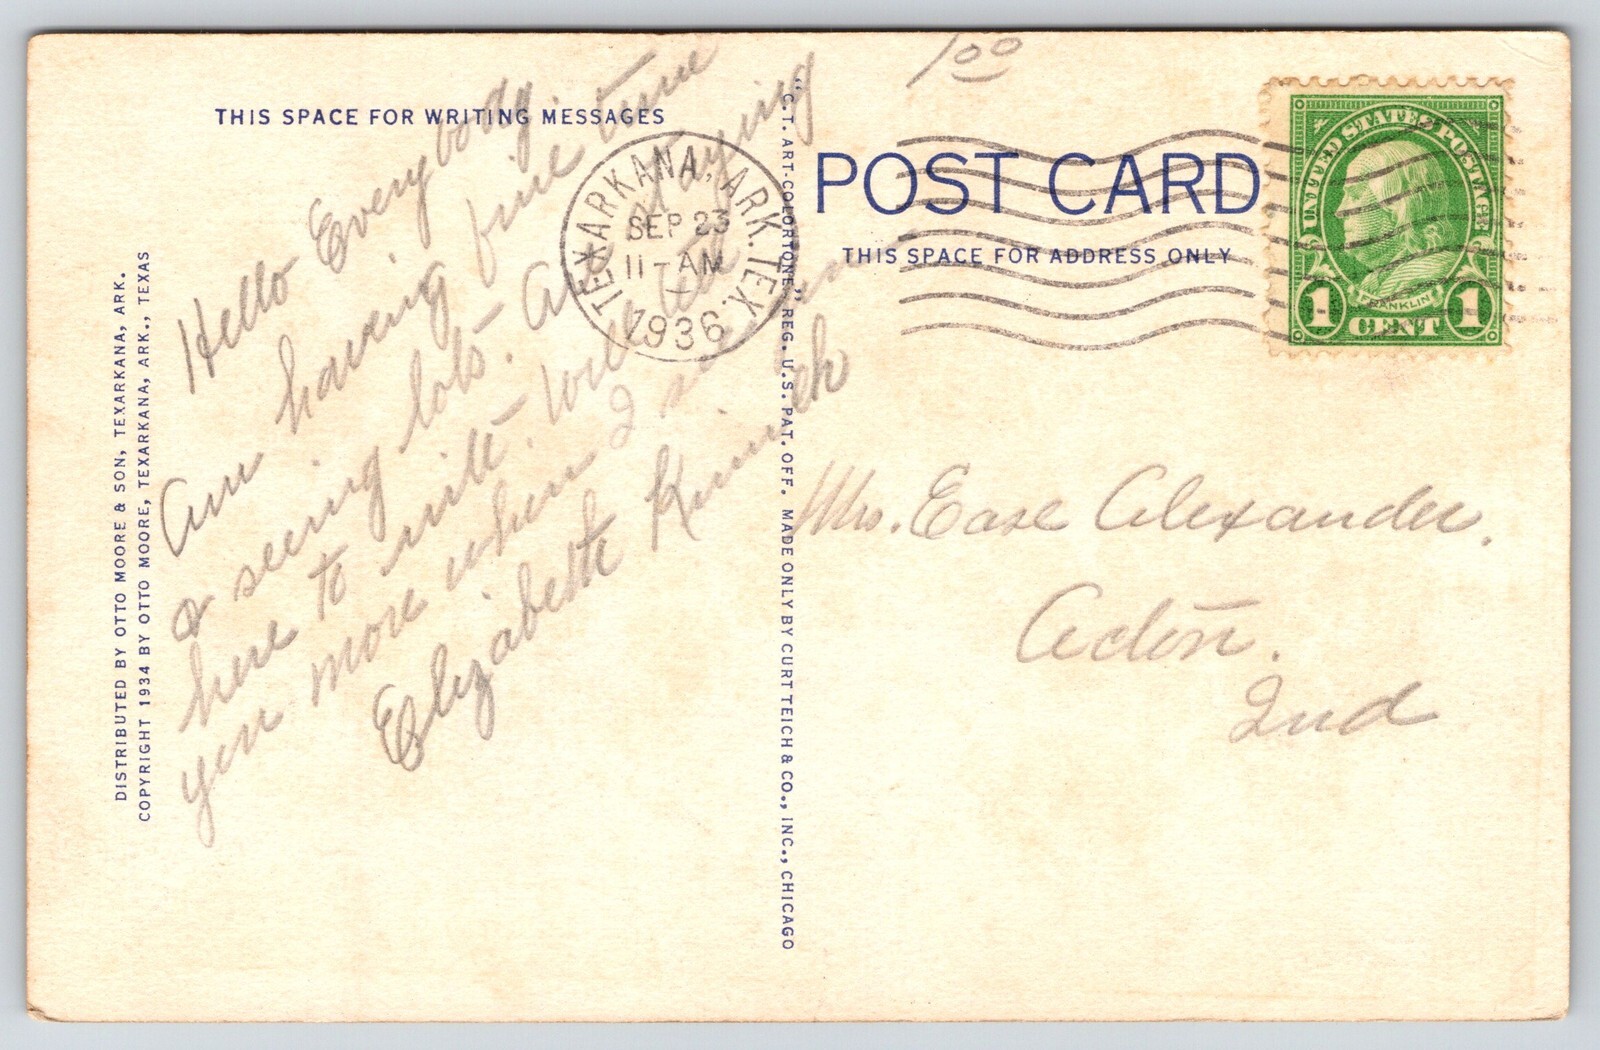 THIS SPACE FOR WRITING MESSAGES
Hello Everybody.
Am having fine time
& seeing lots. Am staying
here to
you more when I see
Elizabeth
DISTRIBUTED BY OTTO MOORE & SON, TEXARKANA, ARK.
COPYRIGHT 1934 BY OTTO MOORE, TEXARKANA, ARK., TEXAS
TEXARKANA, ARK. TEX.
SEP 23
11-AM
1936
"C.T. ART-COLORTONE" REG. U.S. PAT. OFF. MADE ONLY BY CURT TEICH & CO., INC., CHICAGO
100
POST CARD
THIS SPACE FOR ADDRESS ONLY
UNITED STATES POSTAGE
FRANKLIN
1 CENT 1
Mrs. Ease Alexander.
Acton.
Ind